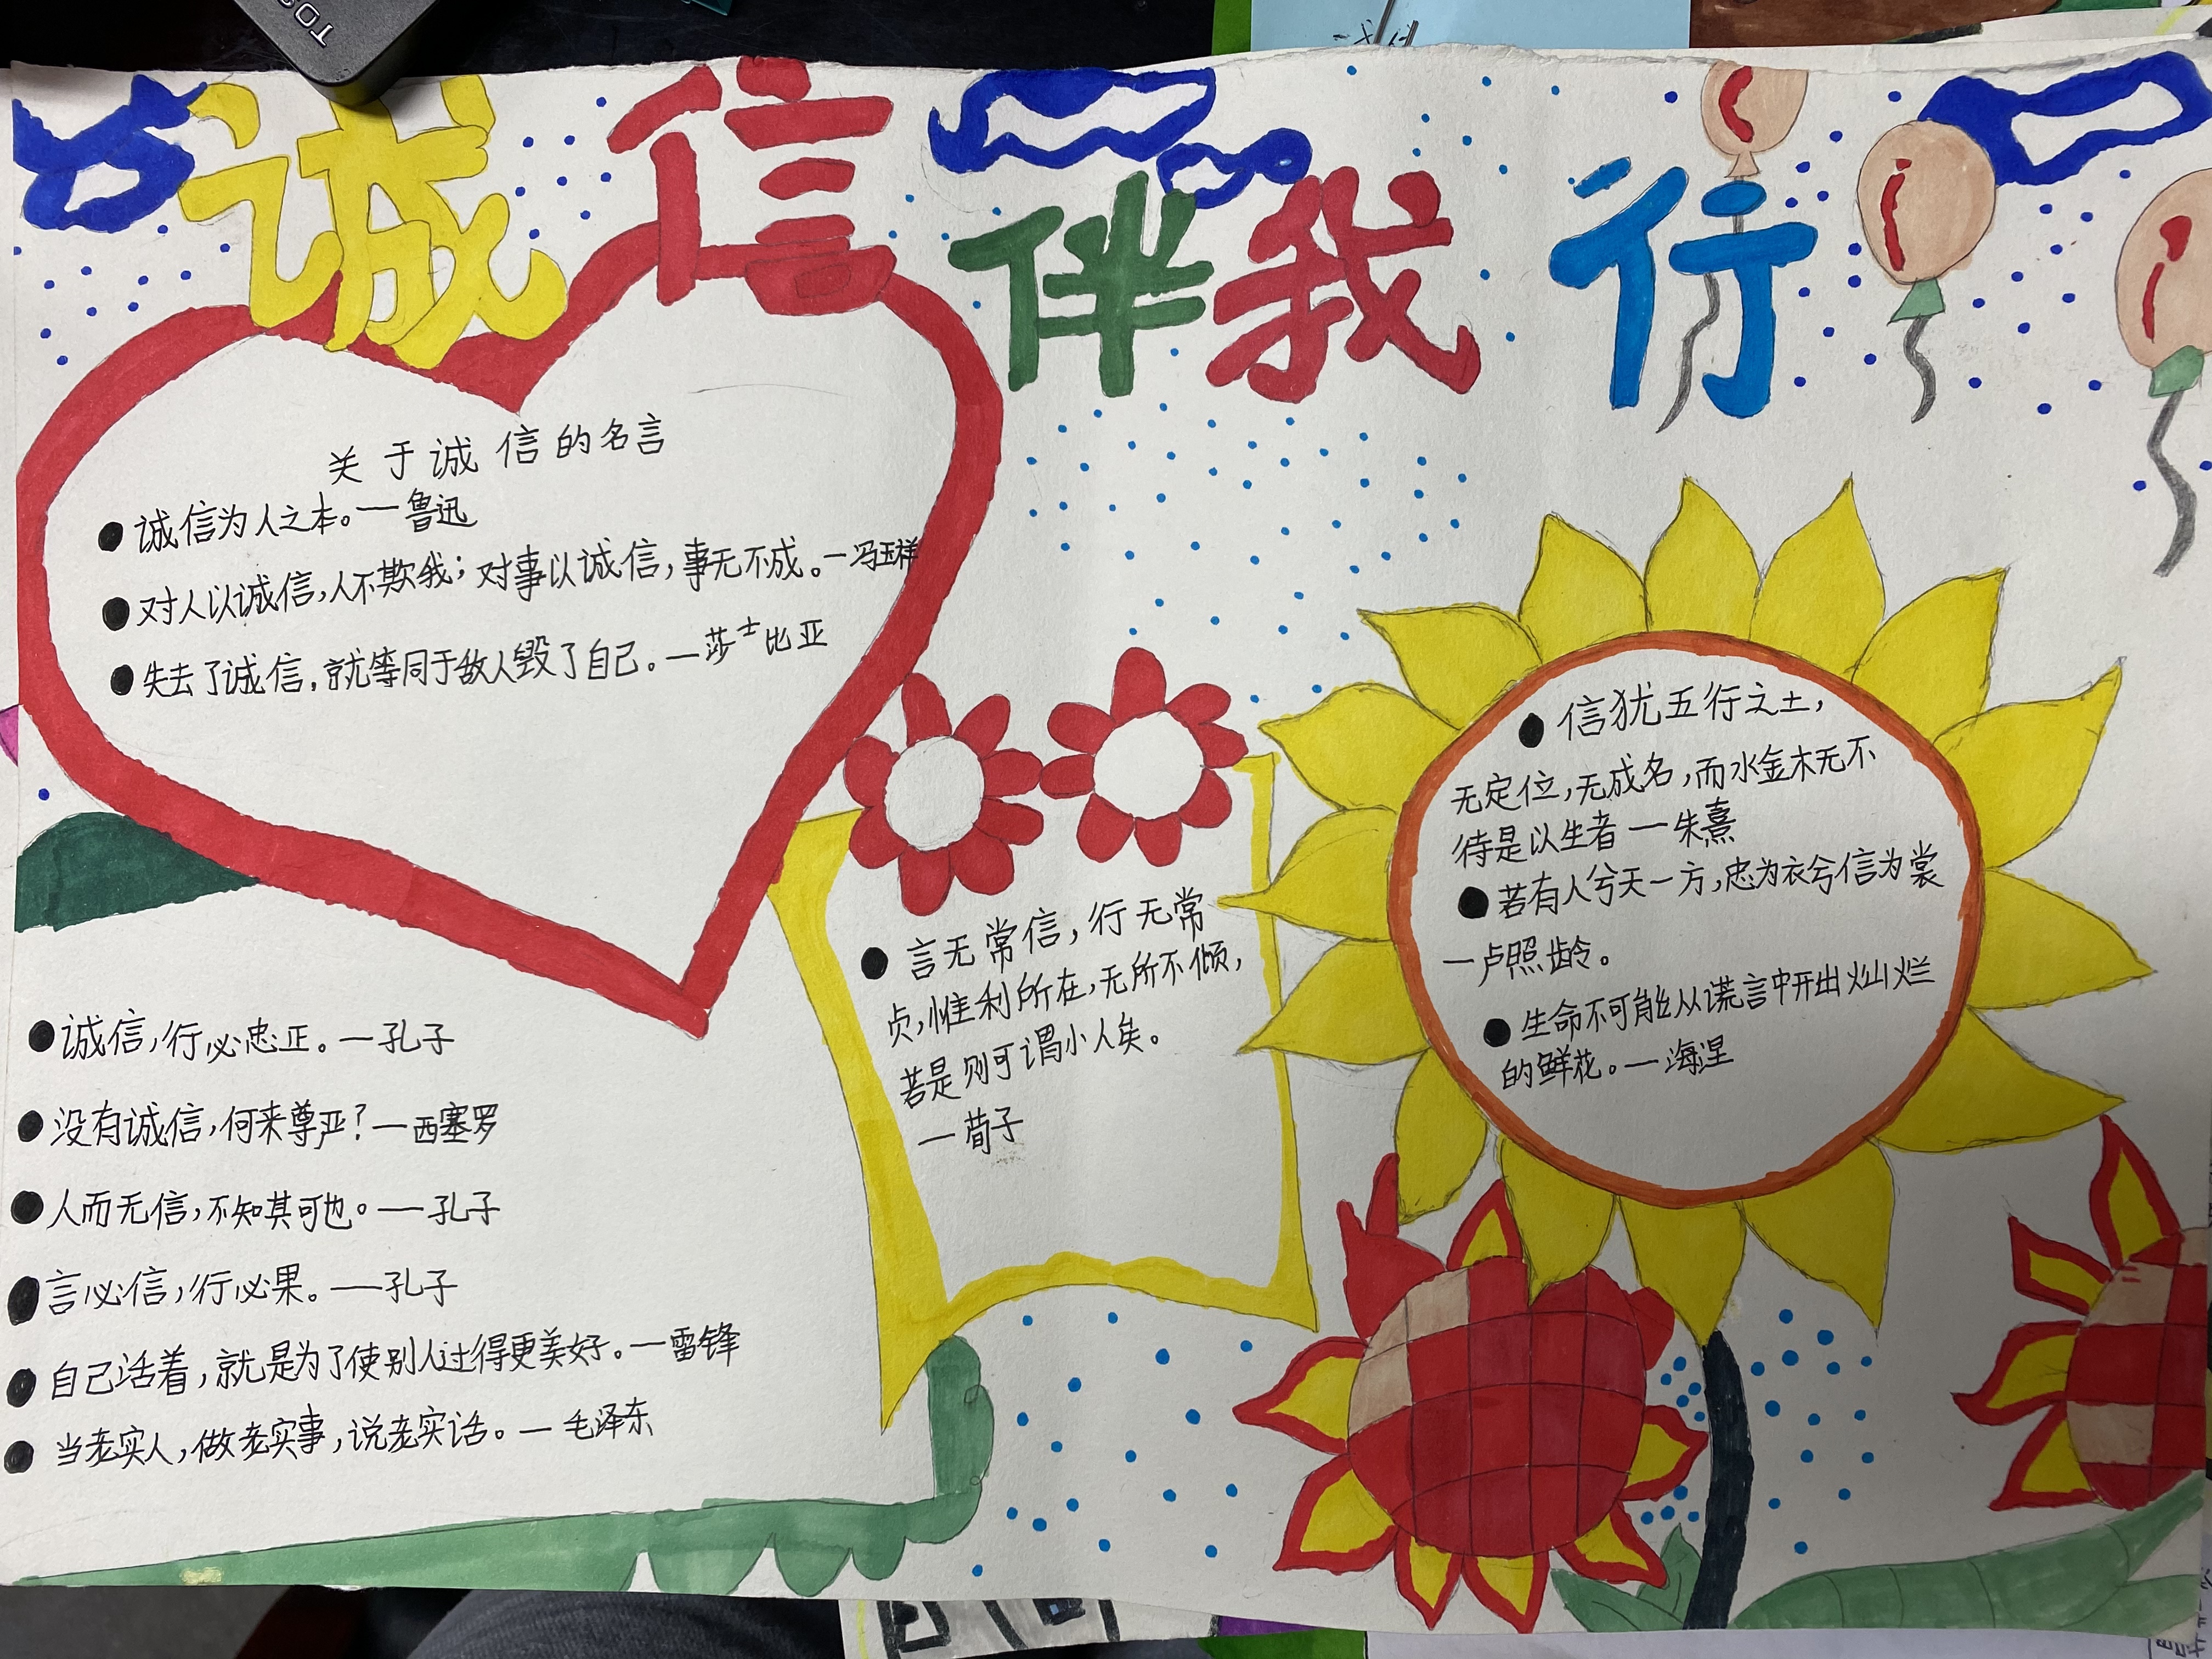 诚信伴我行
关于诚信的名言
●诚信为人之本。一鲁迅
●对人以诚信,人不欺我;对事以诚信,事无不成。一冯玉祥
●失去了诚信,就等同于敌人毁了自己。一莎士比亚
●诚信,行必忠正。一孔子
●没有诚信,何来尊严?一西塞罗
●人而无信,不知其可也。一孔子
●言必信,行必果。一孔子
●自己活着,就是为了使别人过得更美好。一雷锋
●当老实人,做老实事,说老实话。一毛泽东
●言无常信,行无常
贞,惟利所在,无所不倾,
若是则可谓小人矣。
一荀子
●信犹五行之土,
无定位,无成名,而水金木无不
待是以生者一朱熹
●若有人兮天一方,忠为衣兮信为裳
一卢照龄。
●生命不可能从谎言中开出灿烂
的鲜花。一海涅